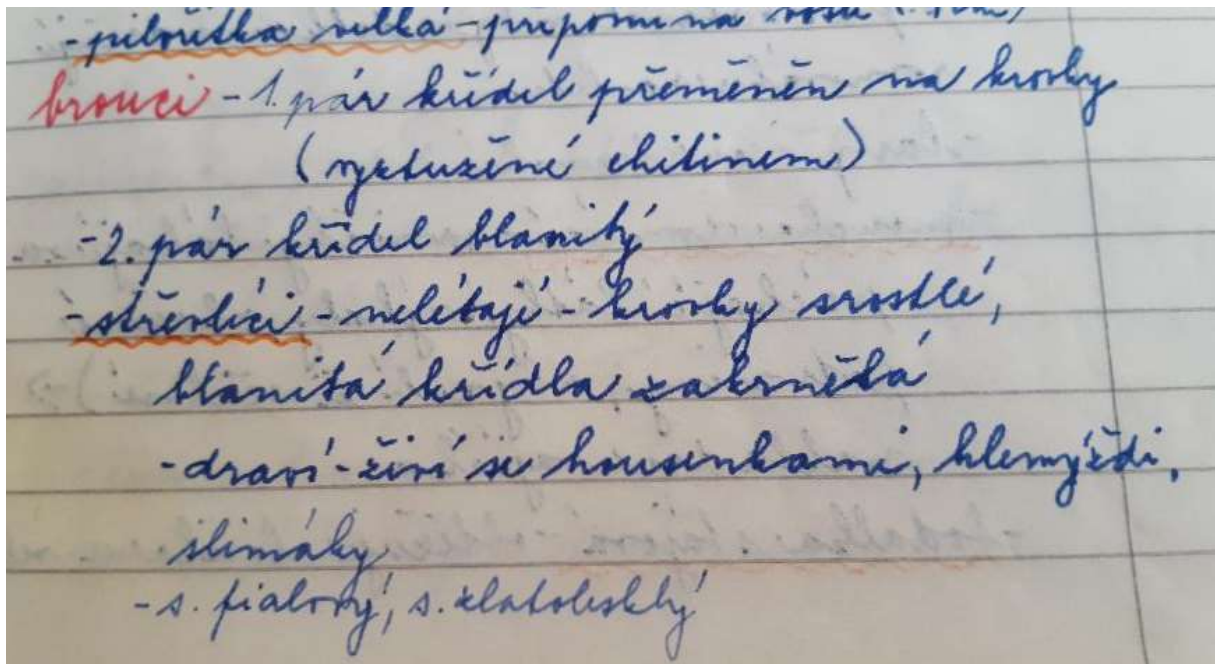 -pilořitka velká - připomíná vosu
brouci - 1. pár křídel přeměněn na krovky
(vyztužené chitinem)
-2. pár křídel blanitý
-střevlíci - nelétají - krovky srostlé,
blanitá křídla zakrnělá
-draví - živí se housenkami, hlemýždi,
slimáky
-s. fialový, s. zlatolesklý